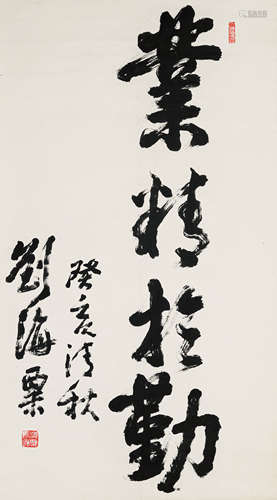 業精於勤
癸亥清秋
劉海粟